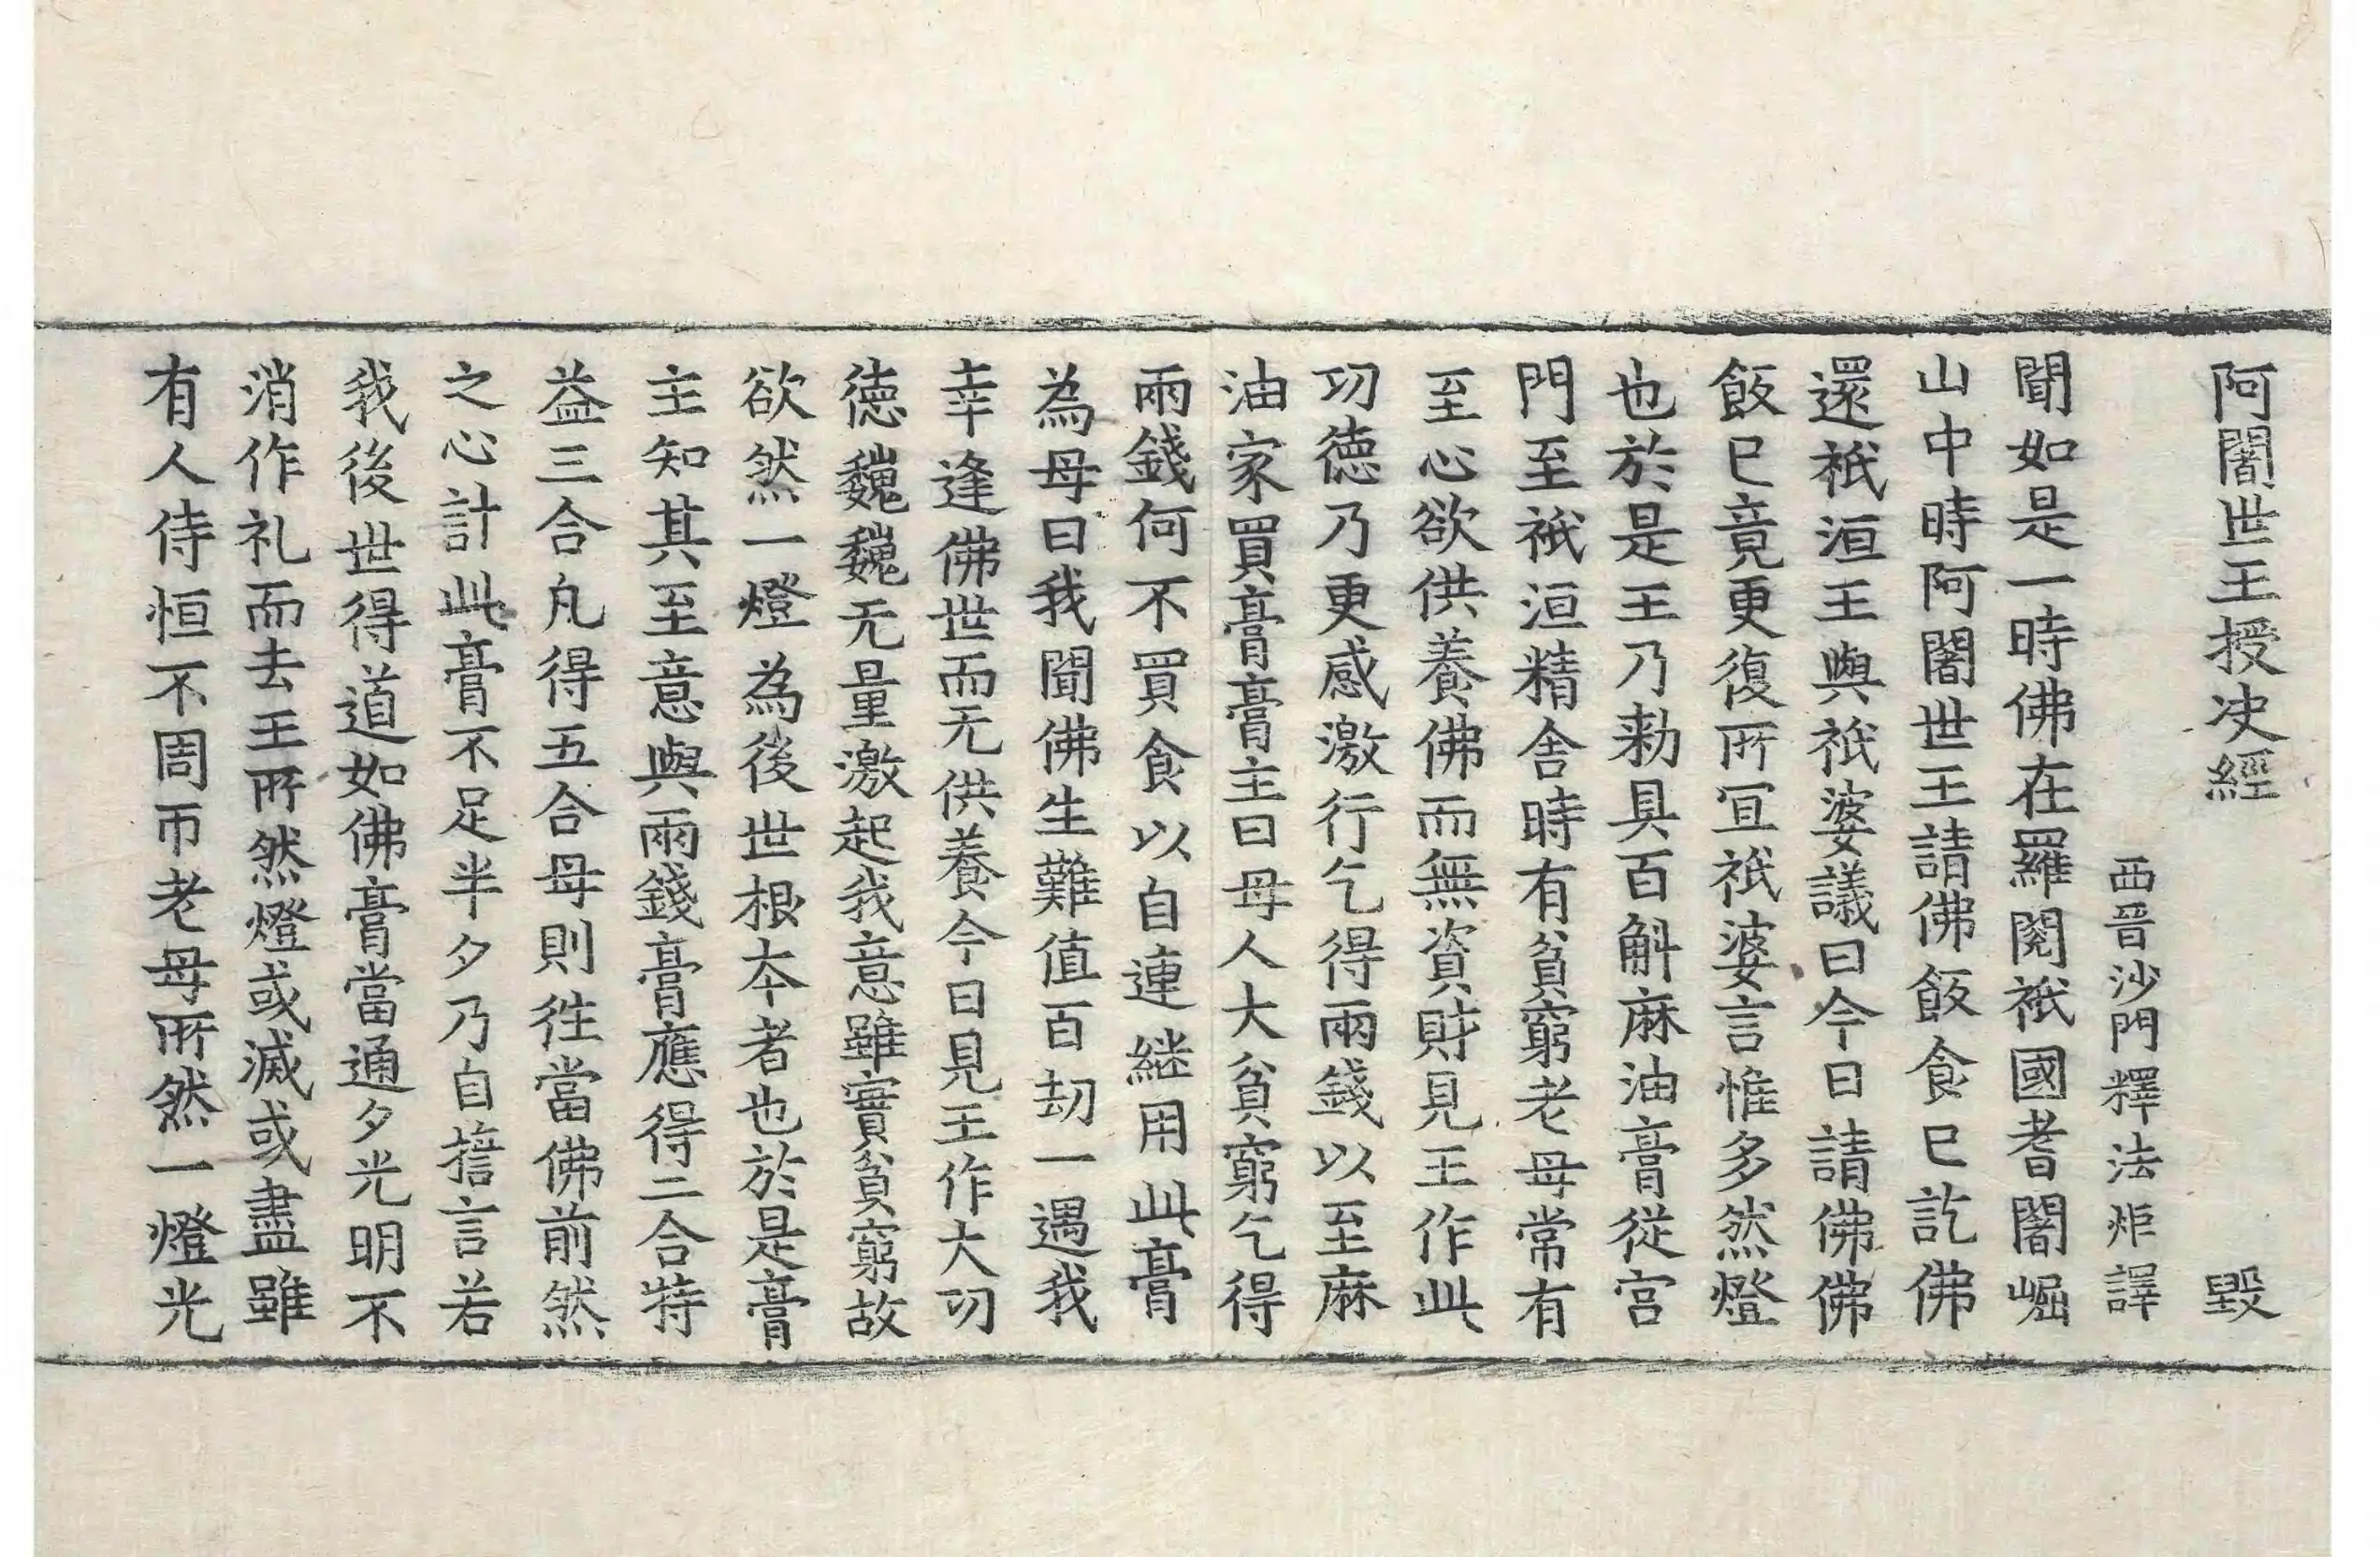 阿闍世王授决經 毀
西晉沙門釋法炬譯
聞如是一時佛在羅閱祇國耆闍崛
山中時阿闍世王請佛飯食已訖佛
還祇洹王與祇婆議曰今日請佛佛
飯已竟更復所冝祇婆言惟多然燈
也於是王乃勑具百斛麻油膏從宫
門至祇洹精舍時有貧窮老母常有
至心欲供養佛而無資財見王作此
功德乃更感激行乞得兩錢以至麻
油家買膏膏主曰母人大貧窮乞得
兩錢何不買食以自連継用此膏
為母曰我聞佛生難值百劫一遇我
幸逢佛世而无供養今日見王作大功
德巍巍无量激起我意雖實貧窮故
欲然一燈為後世根本者也於是膏
主知其至意與兩錢膏應得二合特
益三合凡得五合母則徃當佛前然
之心計此膏不足半夕乃自誓言若
我後世得道如佛膏當通夕光明不
消作礼而去王所然燈或滅或盡雖
有人侍恒不周帀老母所然一燈光